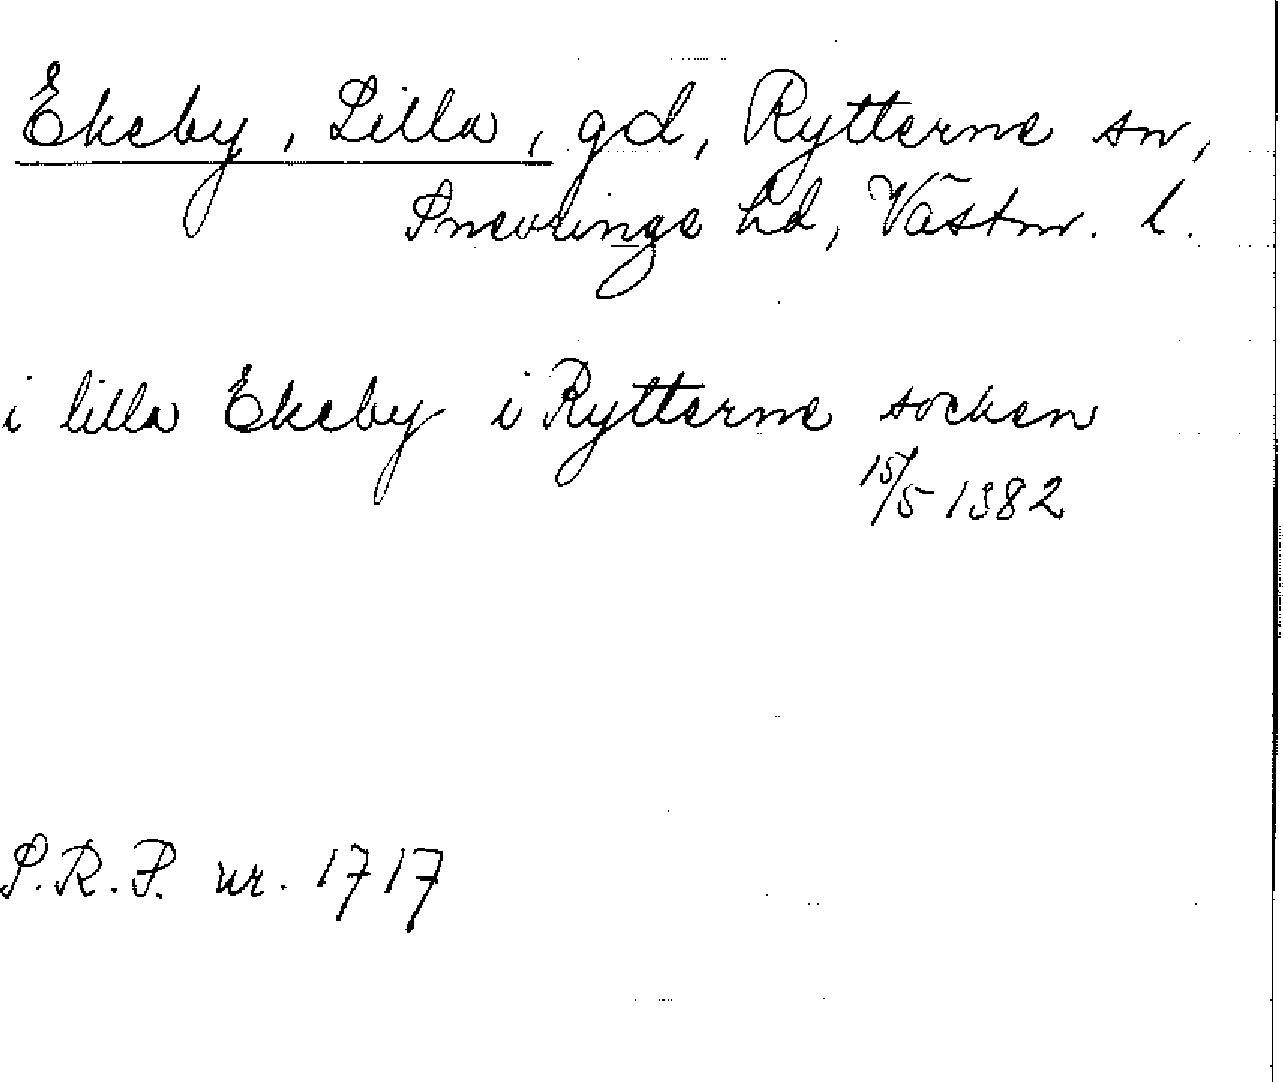 Ekeby, Lilla, gd, Rytterne sn,
Snevringe hd, Västm. l.
i lilla Ekeby i Rytterne socken
15/5 1382
S.R.P. nr. 1717